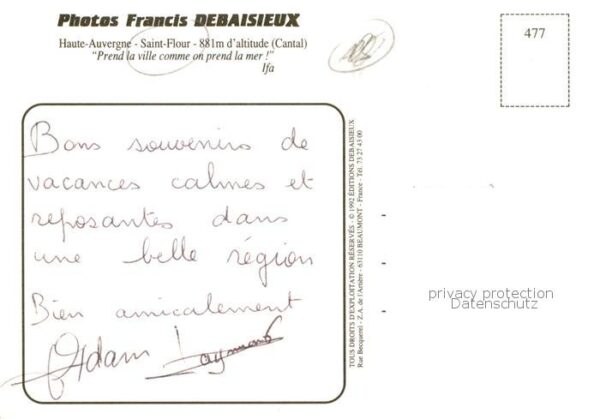 Photos Francis DEBAISIEUX
Haute-Auvergne - Saint-Flour - 881m d'altitude (Cantal)
"Prend la ville comme on prend la mer !"
Ifa
477
Bons souvenirs de
vacances calmes et
reposantes dans
une belle région
Bien amicalement
Adam Raymond
TOUS DROITS D'EXPLOITATION RÉSERVÉS - © 1992 ÉDITIONS DEBAISIEUX
Rue Becquerel - Z.A. de l'Artière - 63110 BEAUMONT - France - Tél. 73 27 43 00
privacy protection
Datenschutz